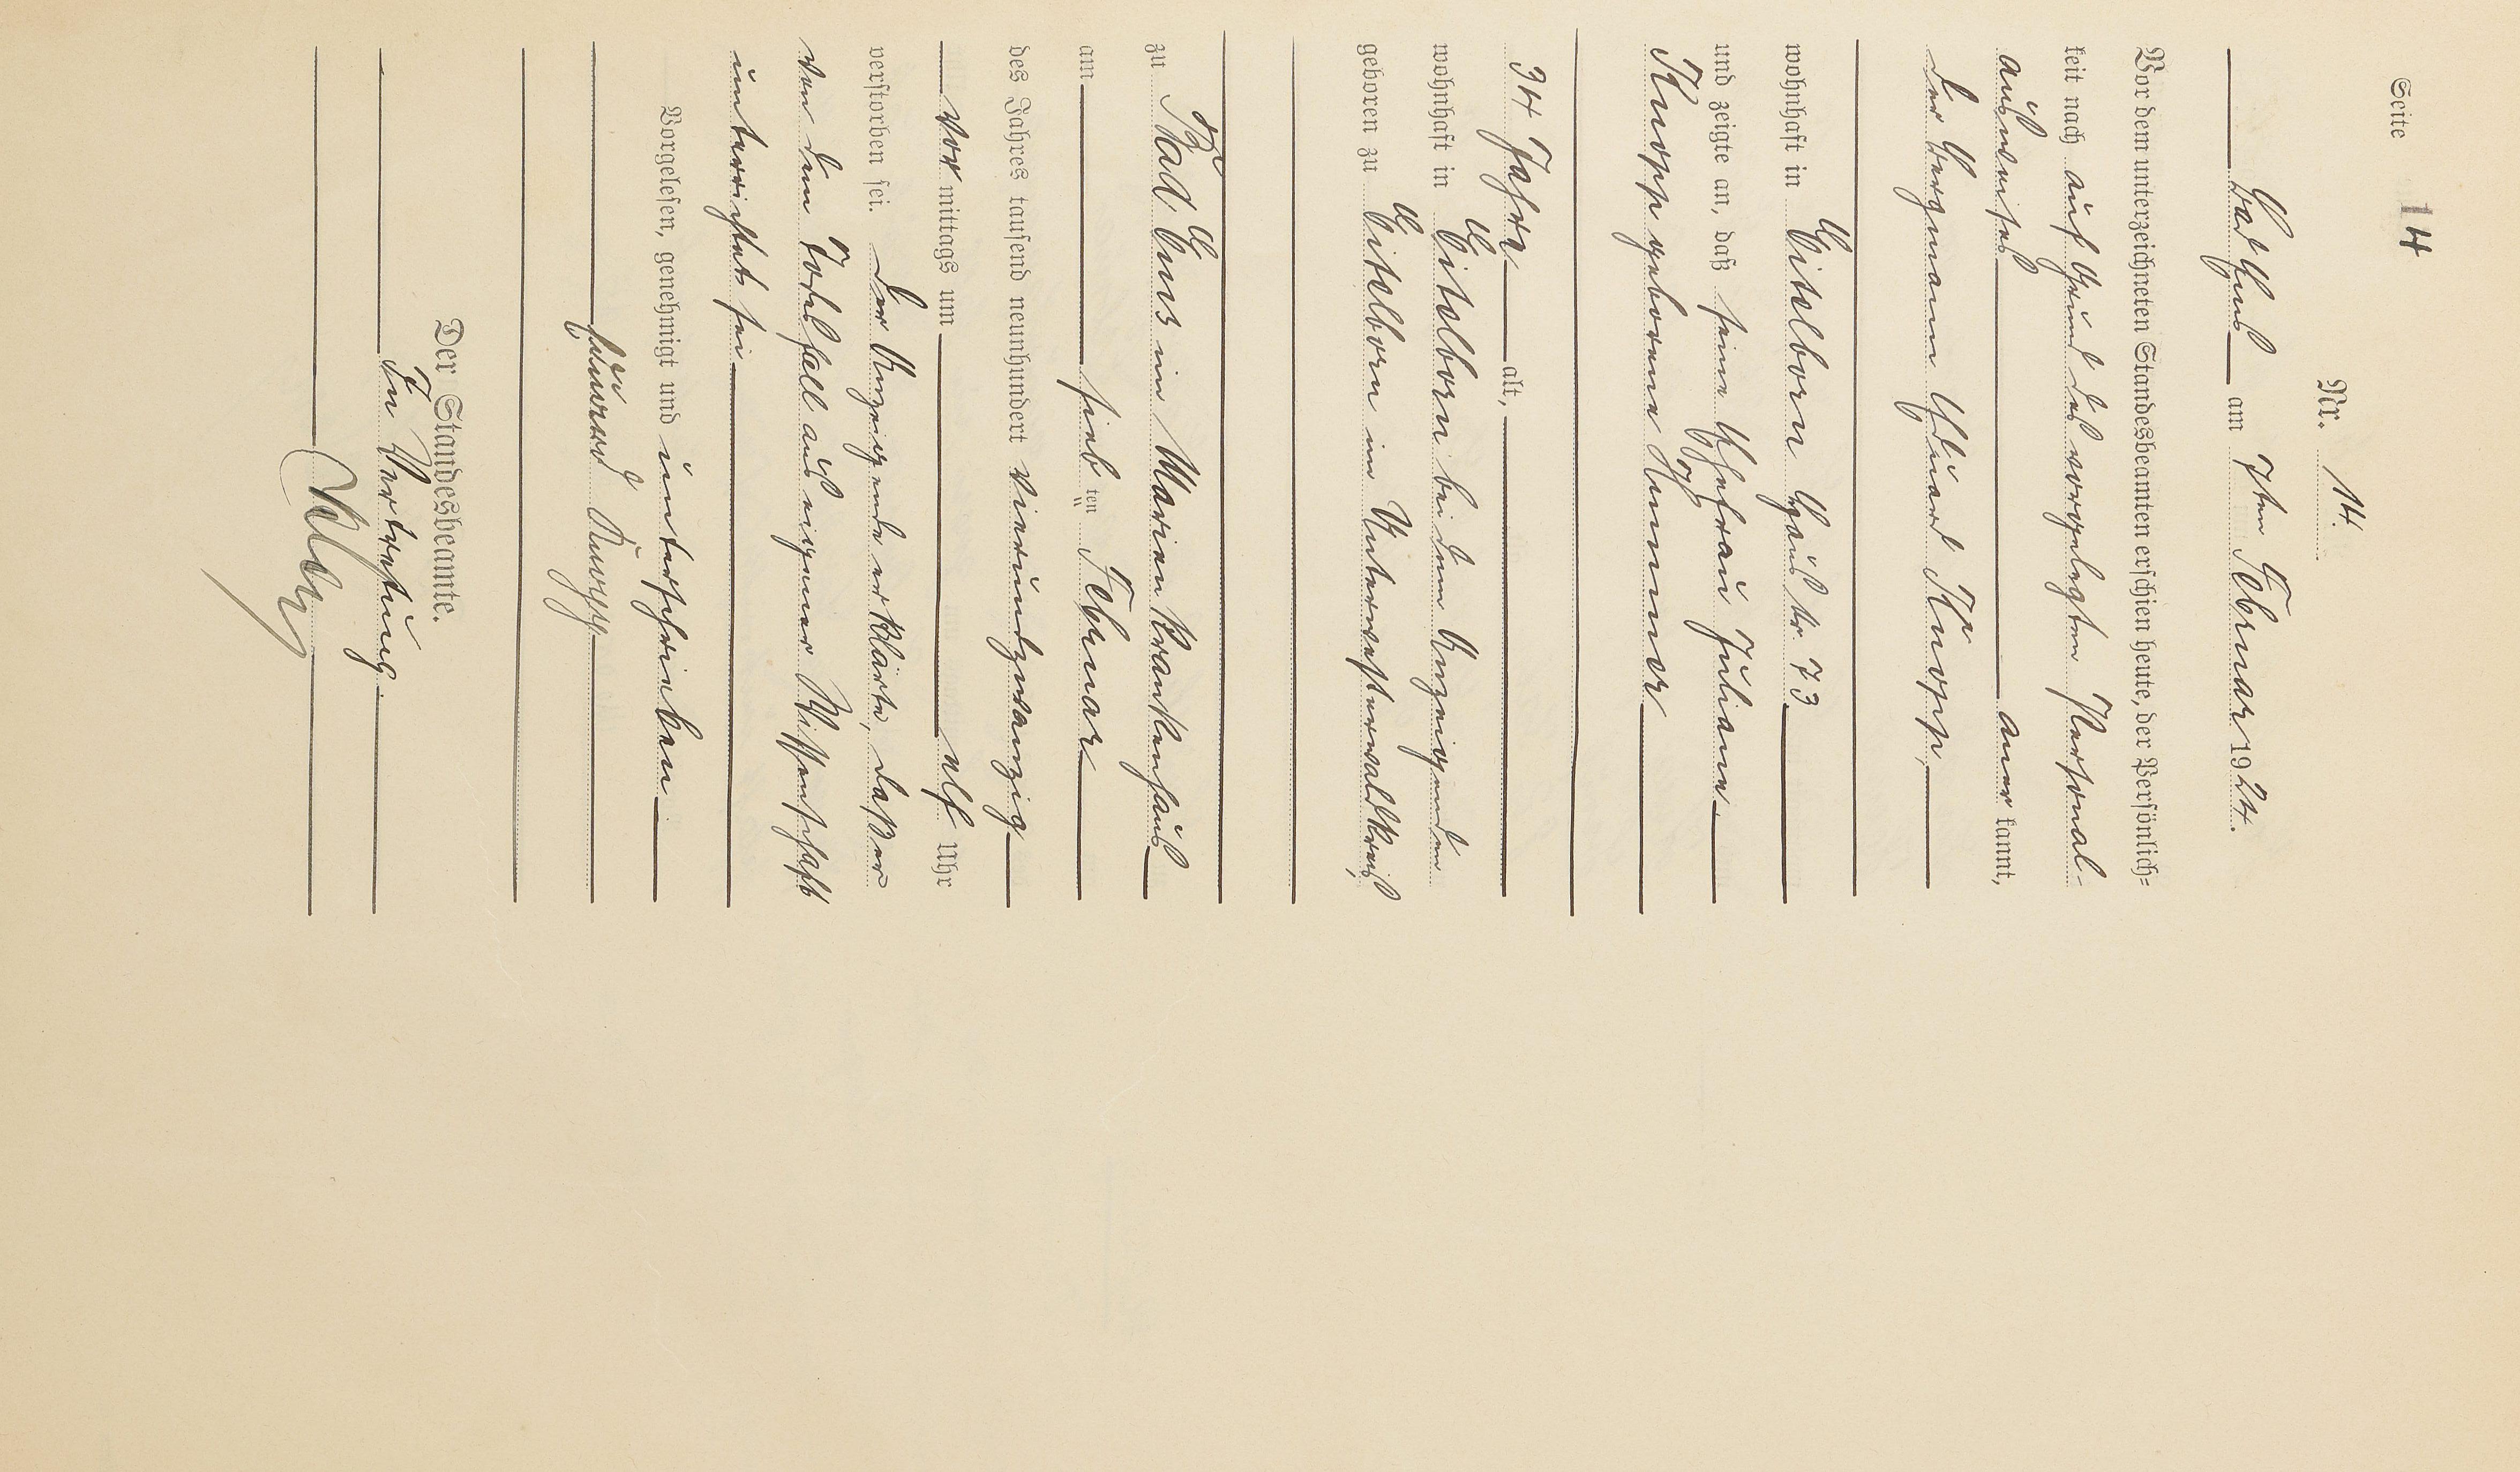 Seite 14
Nr. 14.
Bad Ems am 7ten Februar 1924.
Vor dem unterzeichneten Standesbeamten erschien heute, der Persönlich-
keit nach auf Grund des vorgelegten Personal-
ausweises aner kannt,
der Bergmann Eduard Knopp,
wohnhaft in Eitelborn Haus Nr. 73
und zeigte an, daß seine Ehefrau Juliane
Knopp geborene Hummer
34 Jahre alt,
wohnhaft in Eitelborn bei dem Anzeigenden
geboren zu Eitelborn im Unterwesterwaldkreis,
zu Bad Ems im Marienkrankenhaus
am sieb ten Februar
des Jahres tausend neunhundert vierundzwanzig
vor mittags um elf Uhr
verstorben sei. Der Anzeigende erklärte, daß er
von dem Todesfall aus eigener Wissenschaft
unterrichtet sei
Vorgelesen, genehmigt und unterschrieben
Eduard Knopp
Der Standesbeamte.
In Vertretung.